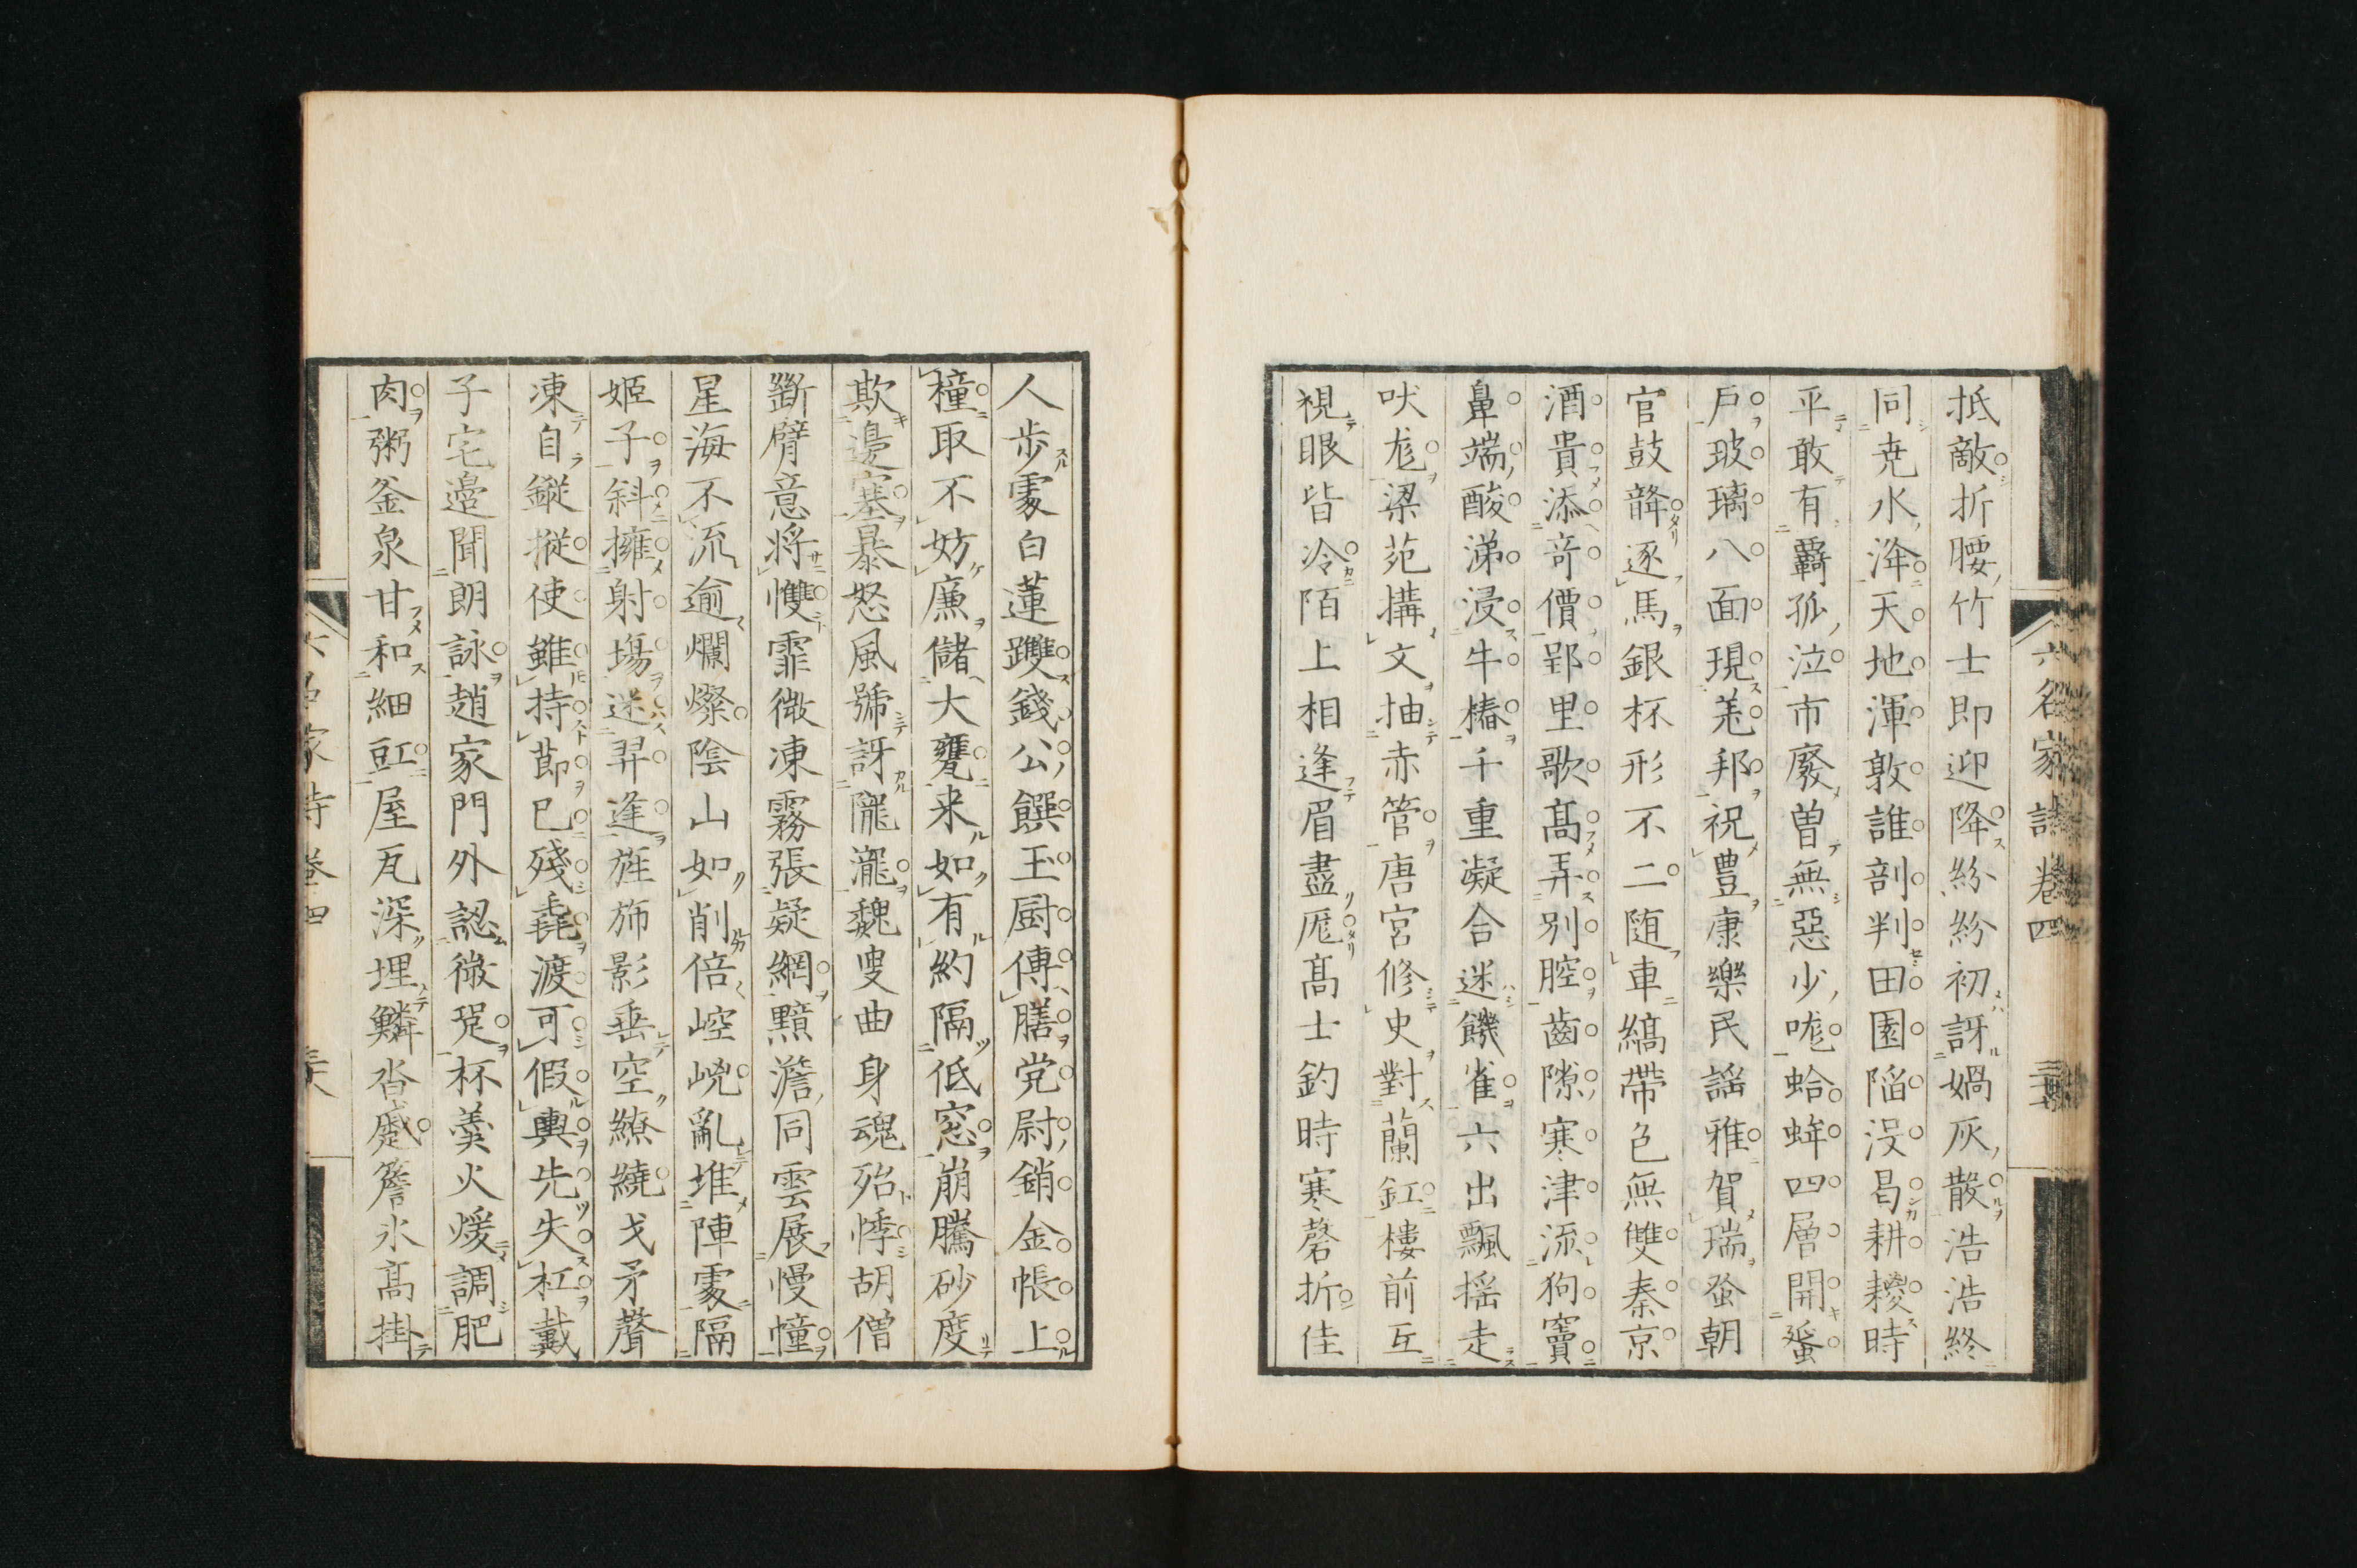 抵敵折腰竹士即迎降紛紛初訝媧灰散浩浩終
同尭水洚天地渾敦誰剖判田園陷没曷耕耰時
平敢有覇孤泣市廢曽無惡少咙蛤蜯四層開蜑
戸玻璃八面現羌邦祝豊康樂民謡雅賀瑞蚕朝
官鼓韸逐馬銀杯形不二随車縞帶色無雙秦京
酒貴添竒價郢里歌髙弄別腔齒隙寒津流狗竇
鼻端酸涕浸牛樁千重凝合迷饑雀六出飄揺走
吠尨梁苑搆文抽赤管唐宮修史對蘭釭樓前互
視眼皆冷陌上相逢眉盡厖髙士釣時寒磬折佳
人歩處白蓮躞錢公饌玉厨傳膳党尉銷金帳上
橦取不妨廉儲大甕来如有約隔低窓崩騰砂度
欺邊塞暴怒風號訝隴瀧魏叟曲身魂殆悸胡僧
斷臂意將慞霏微凍霧張疑網黯澹同雲展慢幢
星海不流逾爛燦陰山如削倍崆峴亂堆陣處隔
姬子斜擁射塲迷羿逢旌斾影垂空繚繞戈矛聲
凍自鏦摐使雖持莭已殘毳渡可假輿先失杠戴
子宅邊聞朗詠趙家門外認微跫杯羮火煖調肥
肉粥釜泉甘和細豇屋瓦深埋鱗沓蹙簷氷髙掛
六名家詩卷四